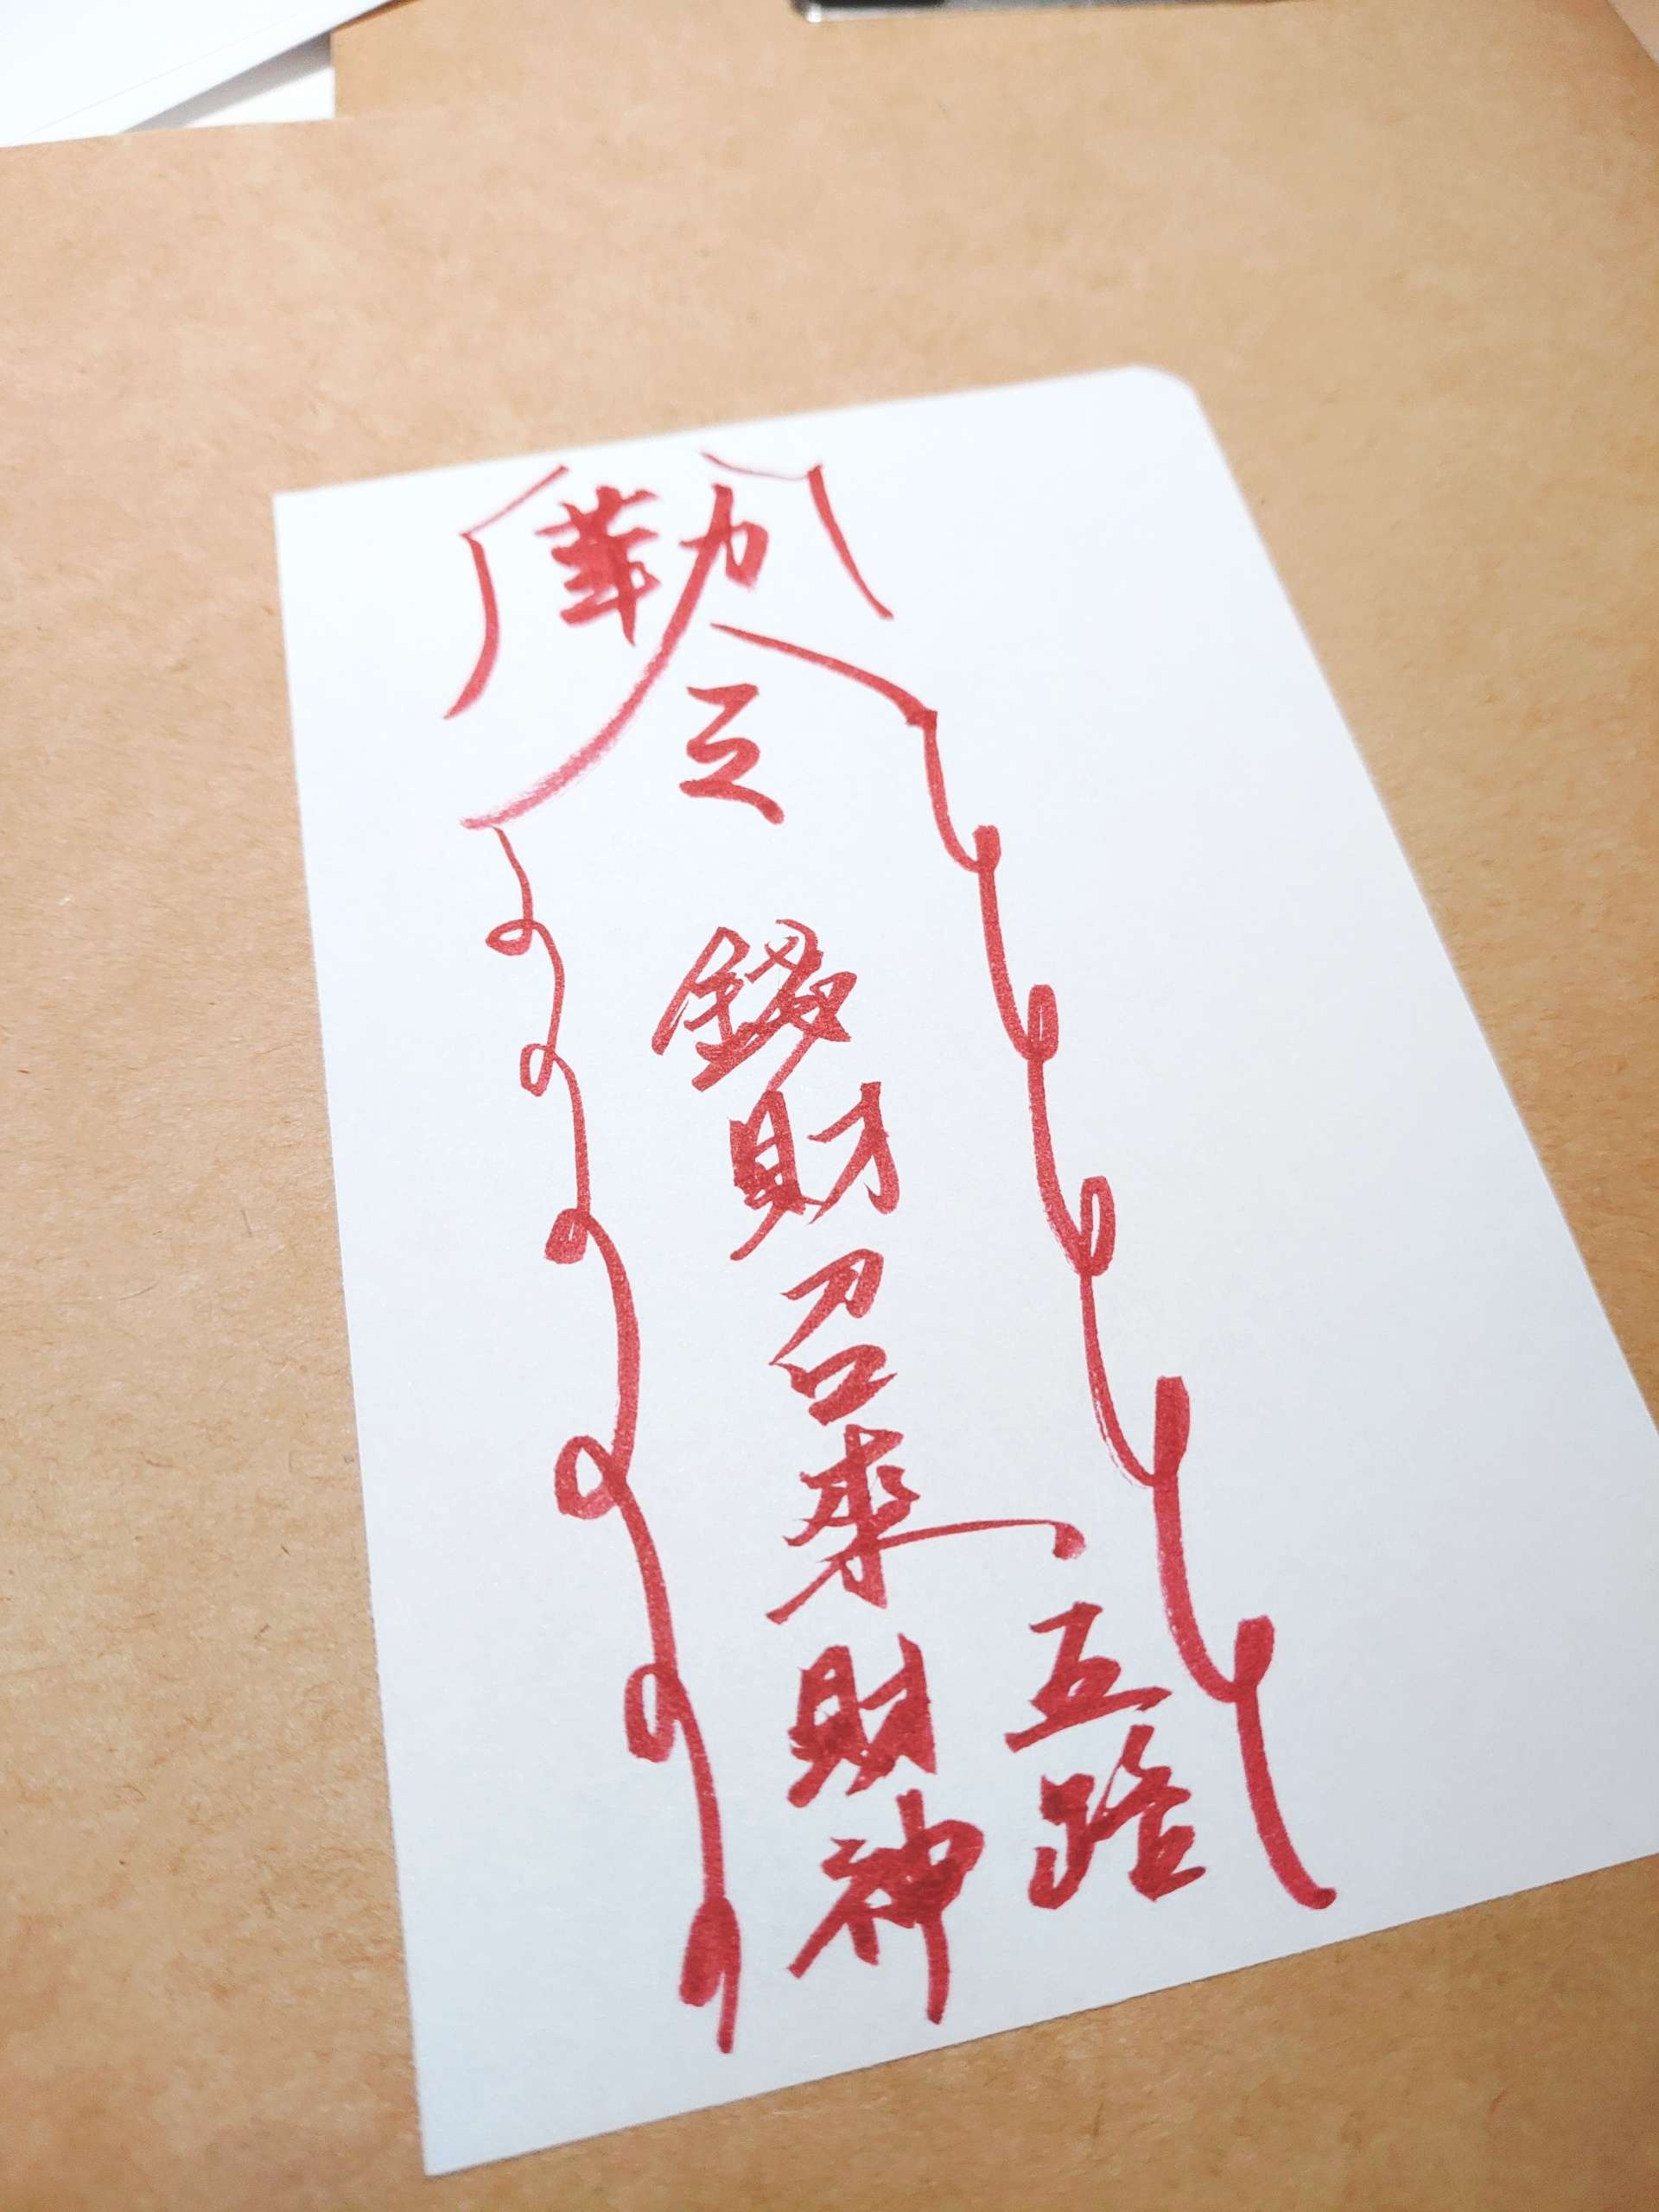 勤令
錢財召來
五路
財神